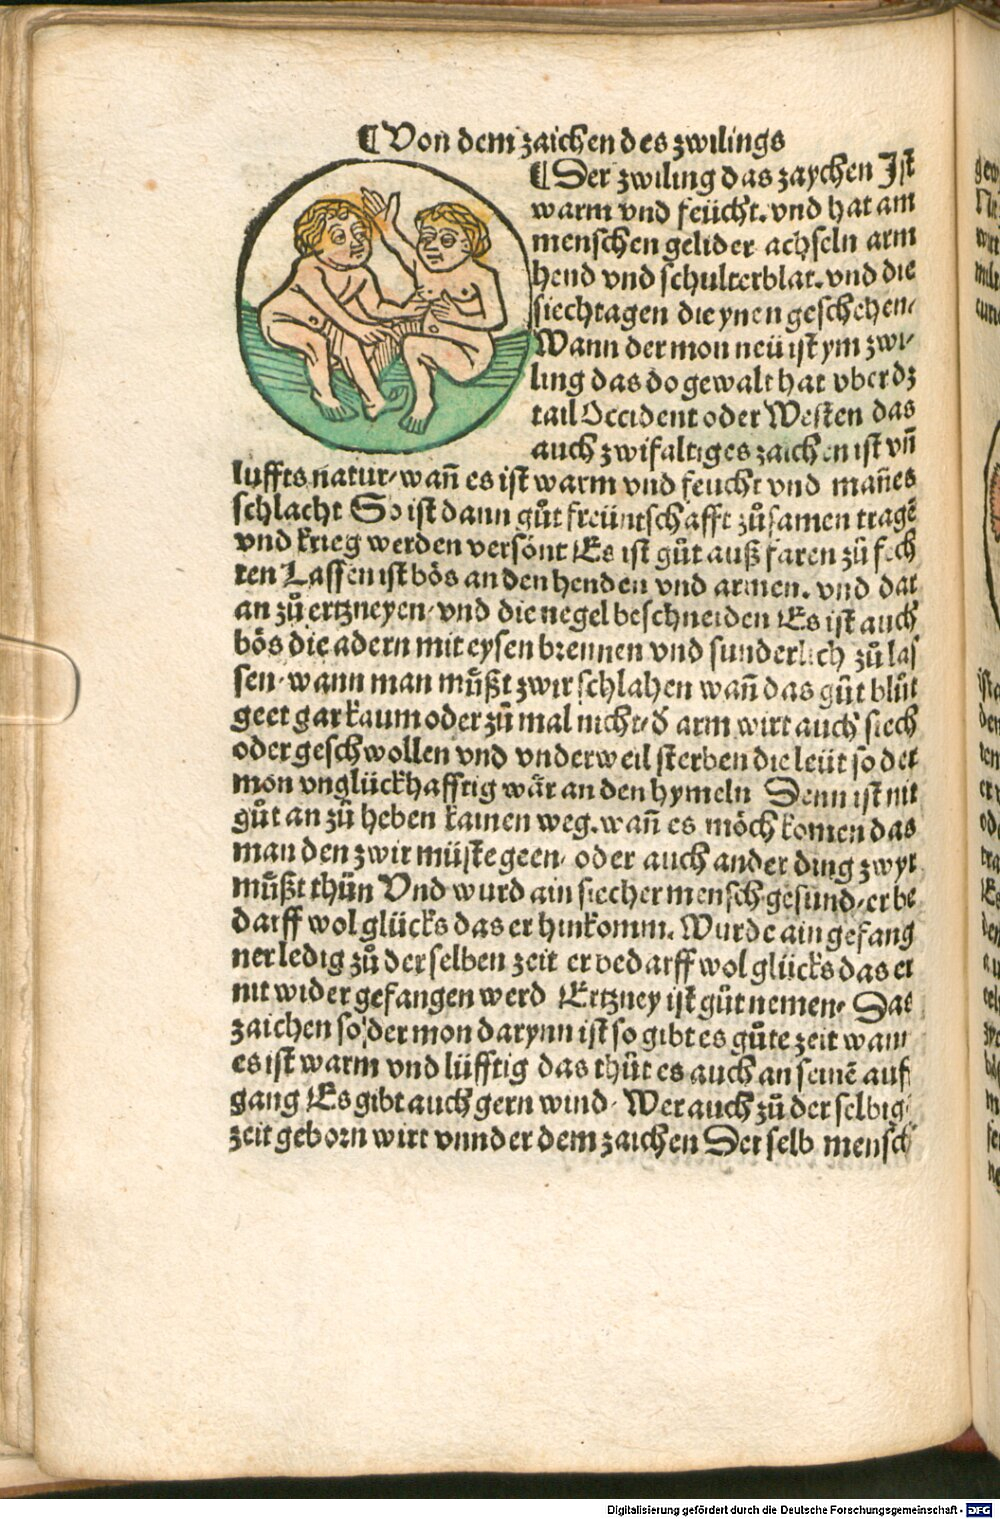 ¶Von dem zaichen des zwilings
¶Der zwiling das zaychen Jst
warm vnd feücht. vnd hat am
menschen gelider achseln arm
hend vnd schulterblat. vnd die
siechtagen die ynen geschehen/
Wann der mon neü ist ym zwi/
ling das do gewalt hat vber dz
tail Occident oder Westen das
auch zwifaltiges zaichen ist vn̄
luffts natur/ wan̄ es ist warm vnd feucht vnd man̄es
schlacht So ist dann gůt freüntschafft zůsamen tragē
vnd krieg werden versönt Es ist gůt auß faren zů fech
ten Lassen ist bös an den henden vnd armen. vnd dar
an zů ertzneyen/ vnd die negel beschneiden Es ist auch
bös die adern mit eysen brennen vnd sunderlich zů las
sen. wann man můßt zwir schlahen wan̄ das gůt blůt
geet gar kaum oder zů mal nicht/ d̄ arm wirt auch siech
oder geschwollen vnd vnderweil sterben die leüt so der
mon vnglückhafftig wär an den hymeln Denn ist nit
gůt an zů heben kainen weg. wan̄ es möch komen das
man den zwir müste geen/ oder auch ander ding zwyr
můßt thůn Vnd wurd ain siecher mensch gesund/ er be
darff wol glücks das er hinkomm. Wurde ain gefang
ner ledig zů der selben zeit er bedarff wol glücks das er
nit wider gefangen werd Ertzney ist gůt nemen/ Das
zaichen so der mon darynn ist so gibt es gůte zeit wann
es ist warm vnd lüfftig das thůt es auch an seinē auf
gang Es gibt auch gern wind. Wer auch zů der selbig
zeit geborn wirt vnnder dem zaichen Der selb mensch
Digitalisierung gefördert durch die Deutsche Forschungsgemeinschaft - DFG